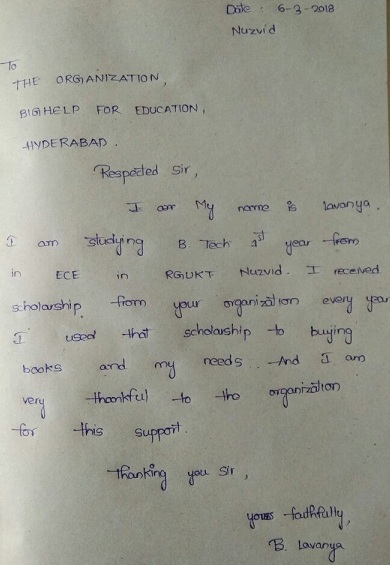 Date : 6-3-2018
Nuzvid
To
THE ORGANIZATION,
BIGHELP FOR EDUCATION,
HYDERABAD.
Respected Sir,
I am My name is lavanya.
I am studying B. Tech 1st year from
in ECE in RGUKT Nuzvid. I received
scholarship from your organization every year
I used that scholarship to buying
books and my needs. And I am
very thankful to the organization
for this support.
Thanking you Sir,
yours faithfully,
B. Lavanya